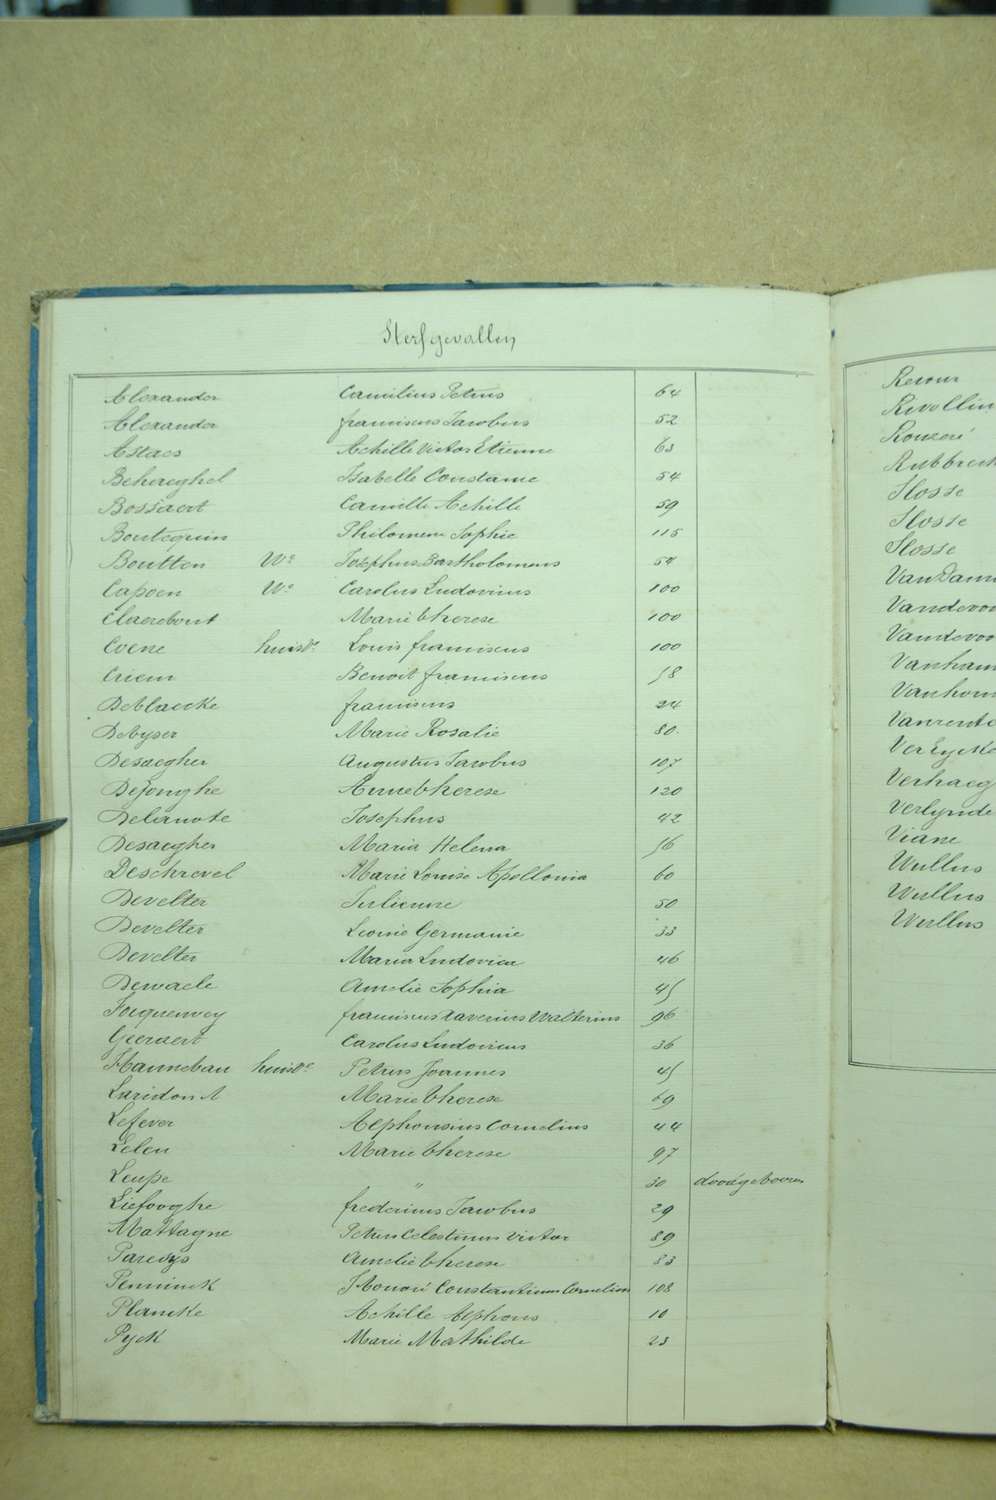 Sterfgevallen
Alexander Camilius Petrus 64
Alexander franciscus Jacobus 52
Astaes Achille Victor Etienne 63
Behaeghel Isabelle Constance 54
Bossaert Camille Achille 59
Boutequin Philomene Sophie 115
Boutten We Josephus Bartholomeus 54
Capoen We Carolus Ludovicus 100
Claerebout Marie therese 100
Coene huisve Louis franciscus 100
Criem Benoit franciscus 58
Deblaecke franciscus 24
Debyser Marie Rosalie 80
Desaegher Augustus Jacobus 107
Dejonghe Anne therese 120
Delanote Josephus 42
Desaegher Maria Helena 56
Deschrevel Marie Louise Apollonia 60
Develter Julienne 50
Develter Leonie Germanie 33
Develter Maria Ludovica 46
Dewaele Amelie Sophia 45
franciscus Xaverius Walterius 96
Geeraert Carolus Ludovicus 36
Hannebau huisve Petrus Joannes 45
Laridon Marie therese 69
Lefever Alphonsus Cornelius 44
Leleu Marie therese 97
Leupe " 30 doodgeboren
Liefooghe fredericus Jacobus 29
Mattagne Petrus Celestinus Victor 89
Paredys Amelie therese 83
Penninck Honoré Constantinus Cornelius 108
Plancke Achille Alphons 10
Pyck Marie Mathilde 23
Rouzeré
Slosse
Slosse
Slosse
Viane
Wullus
Wullus
Wullus